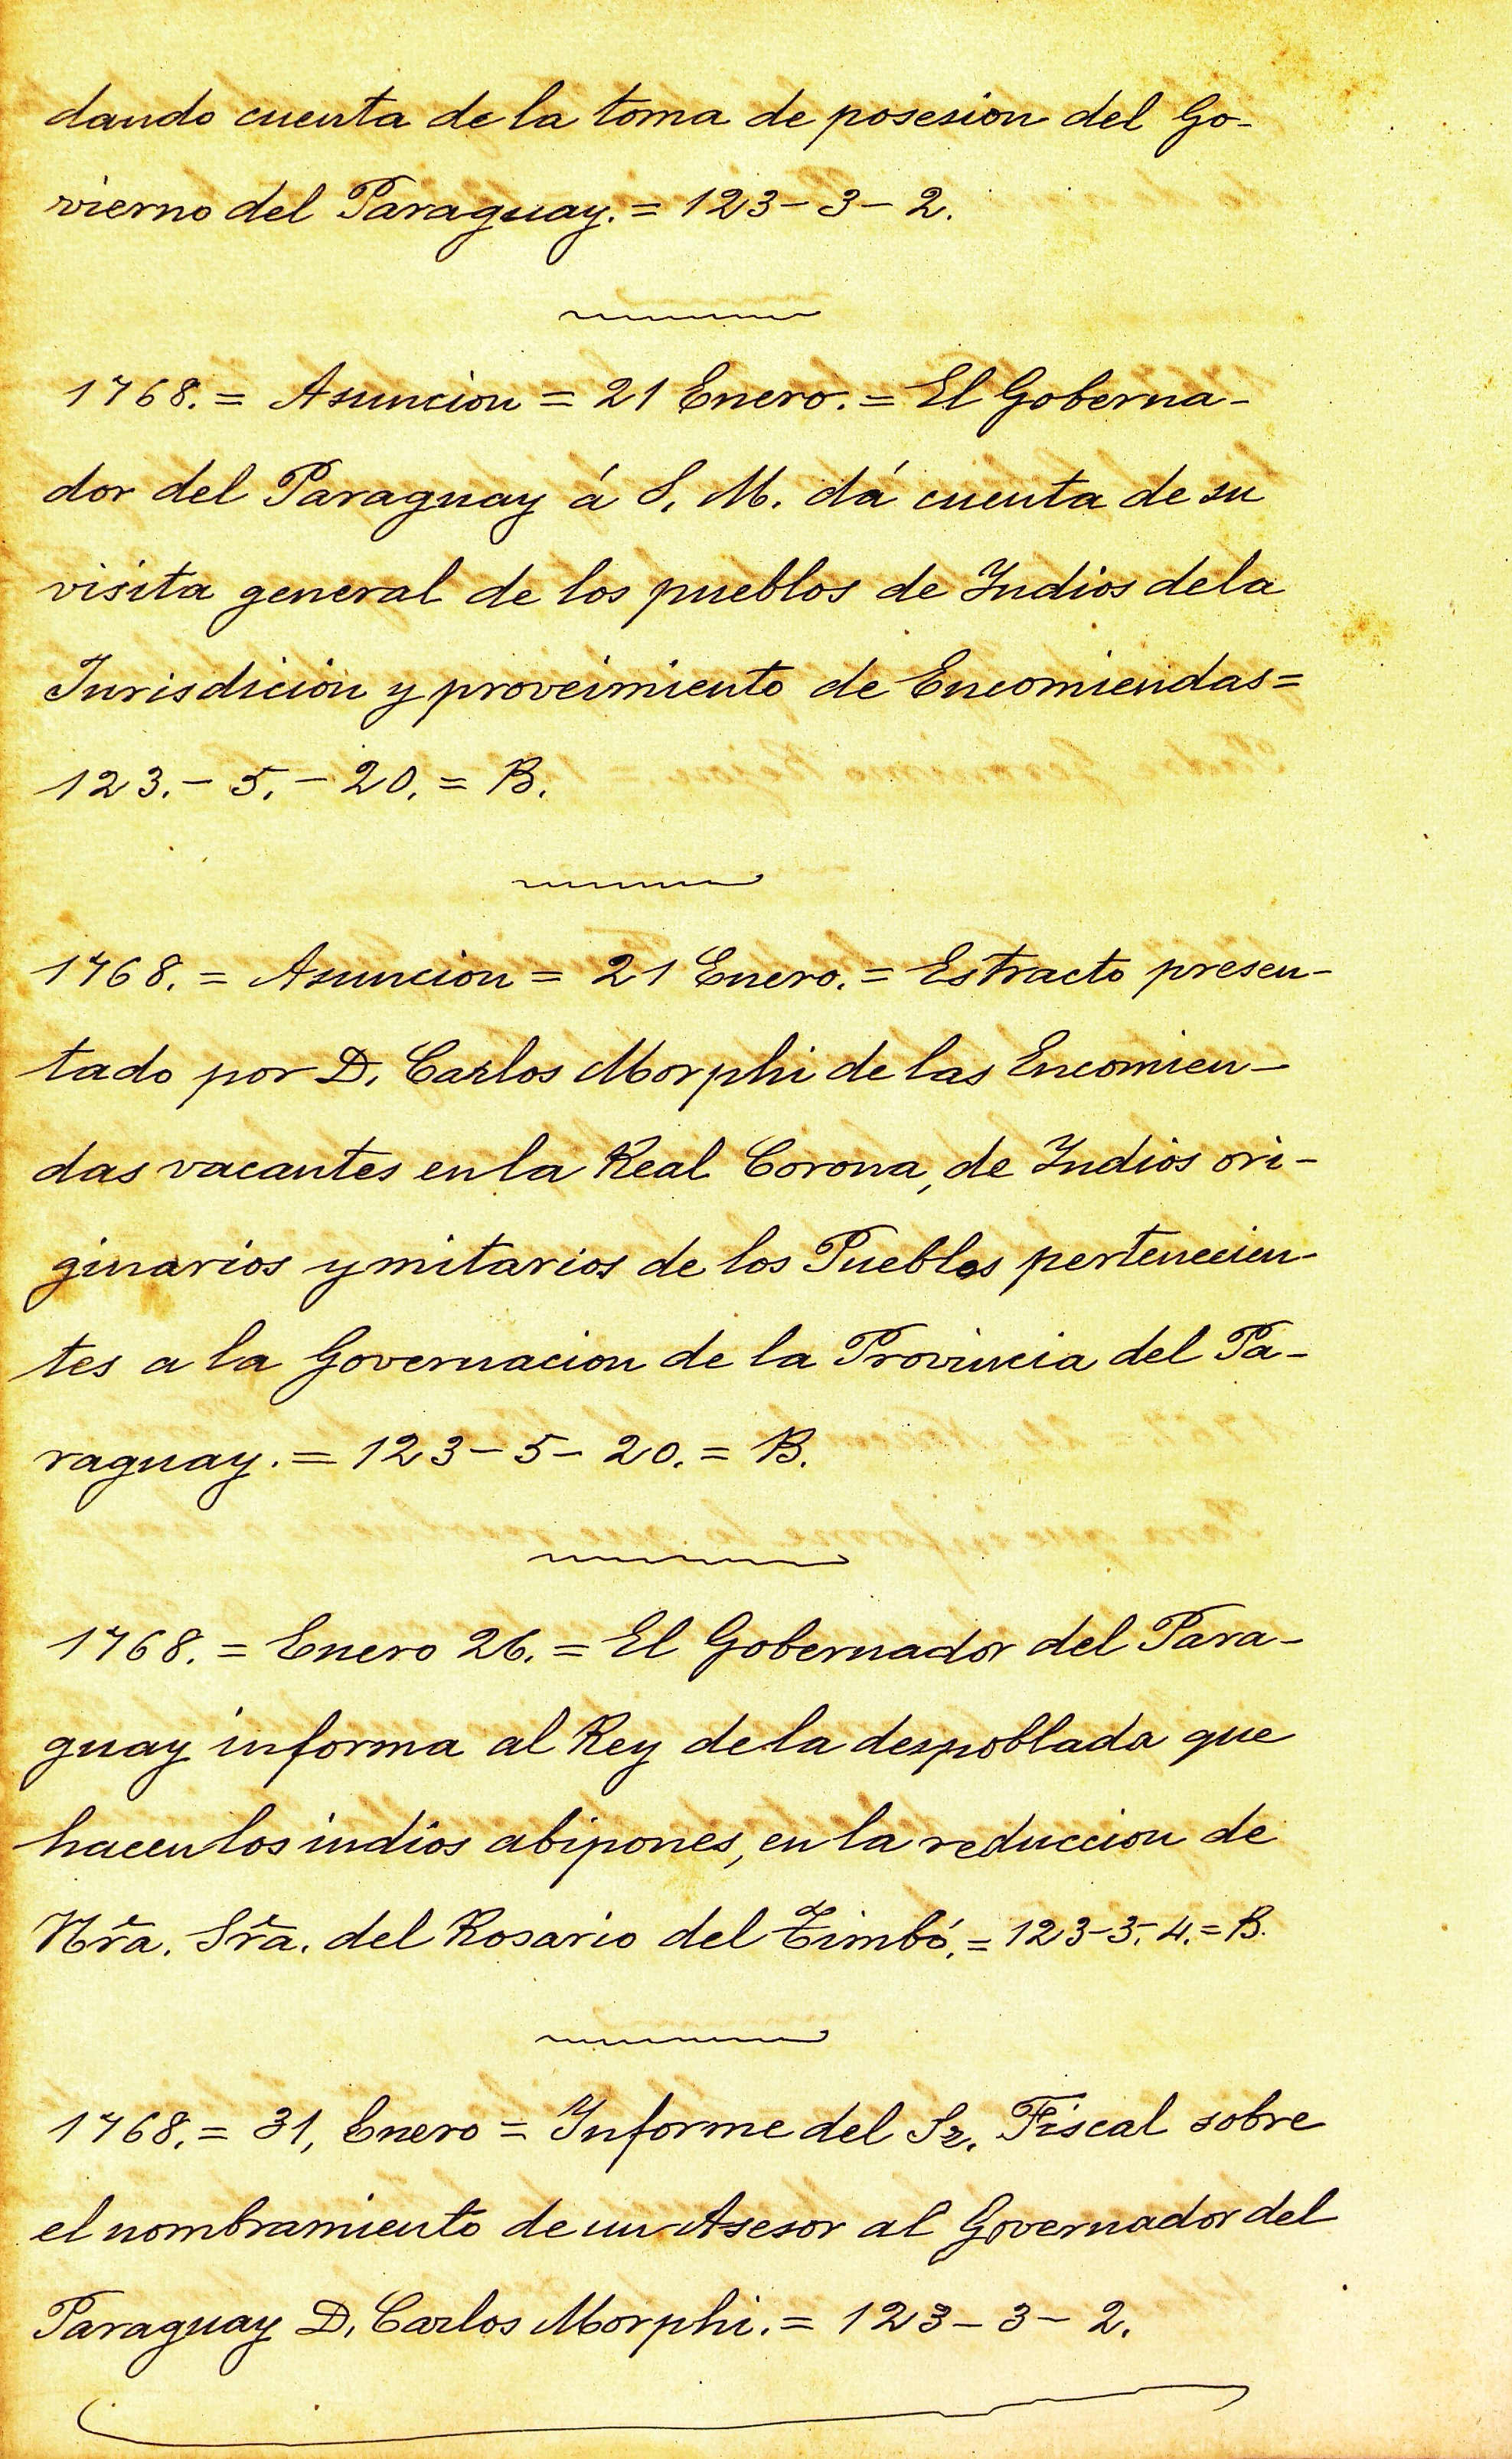 dando cuenta de la toma de posesion del Go-
vierno del Paraguay. = 123 - 3 - 2.
1768. = Asuncion = 21 Enero. = El Goberna-
dor del Paraguay á S. M. dá cuenta de su
visita general de los pueblos de Indios dela
Jurisdicion y proveimiento de Encomiendas =
123. - 5. - 20. = B.
1768. = Asuncion = 21 Enero. = Estracto presen-
tado por D. Carlos Morphi de las Encomien-
das vacantes en la Real Corona, de Indios ori-
ginarios y mitarios de los Pueblos pertenecien-
tes a la Governacion de la Provincia del Pa-
raguay. = 123 - 5 - 20. = B.
1768. = Enero 26. = El Gobernador del Para-
guay informa al Rey de la despoblada que
hacen los indios abipones, en la reduccion de
Ntr̃a. Sr̃a. del Rosario del Timbó. = 123-3-4. = B.
1768. = 31, Enero = Informe del Sr. Fiscal sobre
el nombramiento de un Asesor al Governador del
Paraguay D. Carlos Morphi. = 123 - 3 - 2.